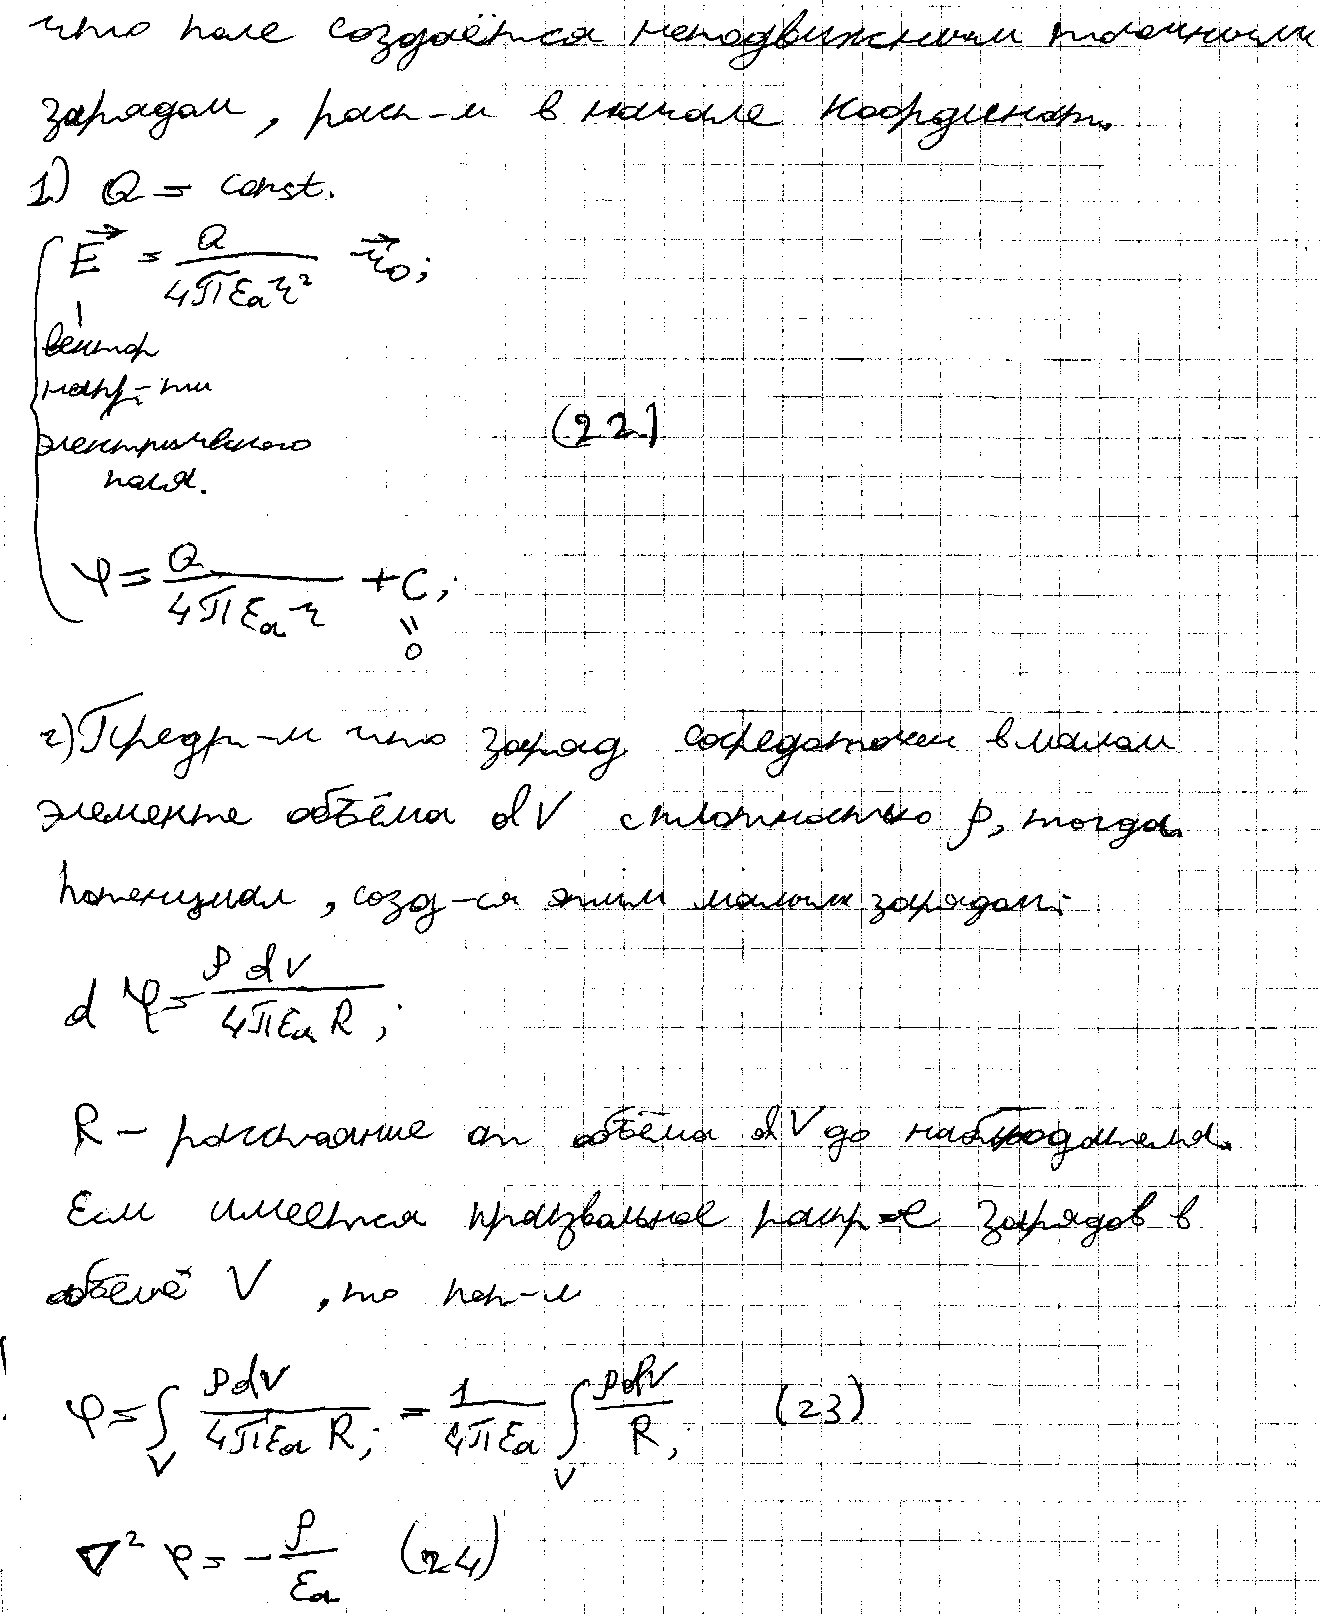 что поле создаётся неподвижным точечным
зарядом, расп-м в начале координат.
1) Q = const.
E⃗ = Q / (4πεₐr²) r⃗₀;
вектор
напр-ти
электрического
поля.
(22)
φ = Q / (4πεₐr) + C;
= 0
2) Предп-м что заряд сосредоточен в малом
элементе объёма dV с плотностью ρ, тогда
потенциал, созд-ся этим малым зарядом:
dφ = ρdV / (4πεₐR);
R – расстояние от объёма dV до наблюдателя.
Если имеется произвольное распр-е зарядов в
объёме V, то пот-л
φ = ∫_V ρdV / (4πεₐR); = 1 / (4πεₐ) ∫_V ρdV / R; (23)
∇²φ = – ρ / εₐ (24)